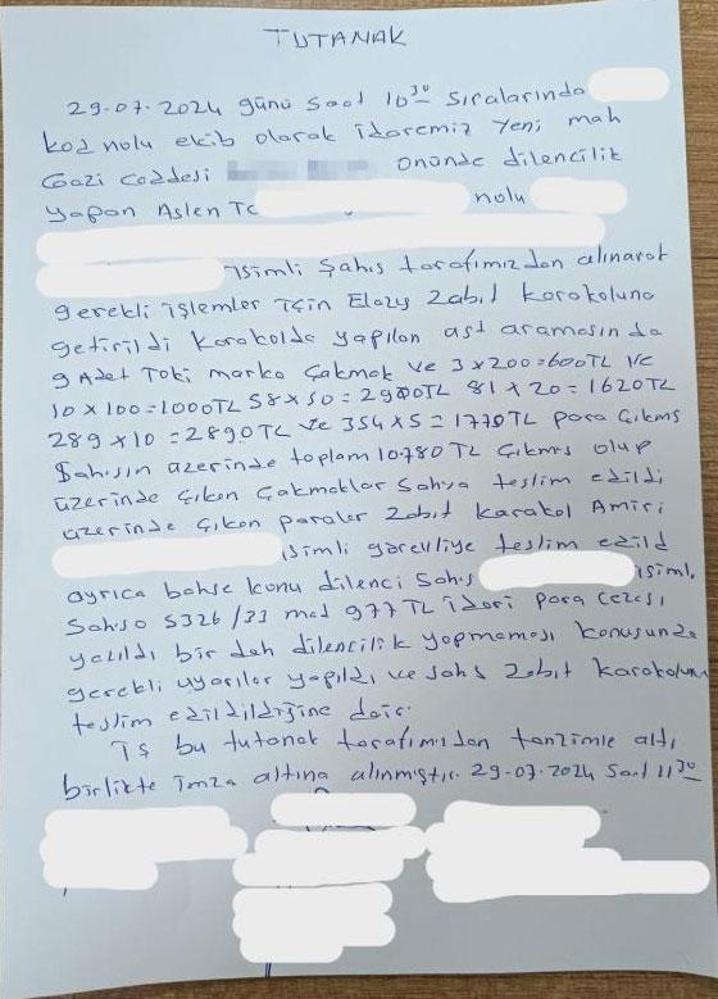 TUTANAK
29.07.2024 günü saat 10³⁰ sıralarında
kod nolu ekib olarak idaremiz Yeni mah
Gazi Caddesi önünde dilencilik
yapan Aslen TC nolu
isimli şahıs tarafımızdan alınarak
gerekli işlemler için Elazığ Zabıt Karakoluna
getirildi Karakolda yapılan üst aramasında
9 Adet Toki marka Çakmak ve 3x200=600TL ve
10x100=1000TL 58x50=2900TL 81x20=1620TL
289x10=2890TL ve 354x5=1770TL para Çıkmış
Şahısın üzerinde toplam 10.780 TL Çıkmış olup
üzerinde çıkan Çakmaklar Şahsa teslim edildi
üzerinde çıkan paralar Zabıt Karakol Amiri
isimli görevliye teslim edild
ayrıca bahse konu dilenci Şahıs isimli
Şahsa 5326/33 mad 977 TL idari para Cezası
yazıldı bir dah dilencilik yapmaması konusunda
gerekli uyarılar yapıldı ve şahs Zabıt Karakoluna
teslim edildildiğine dair.
İş bu tutanak tarafımızdan tanzimle altı
birlikte imza altına alınmıştır. 29.07.2024 Saat 11³⁰